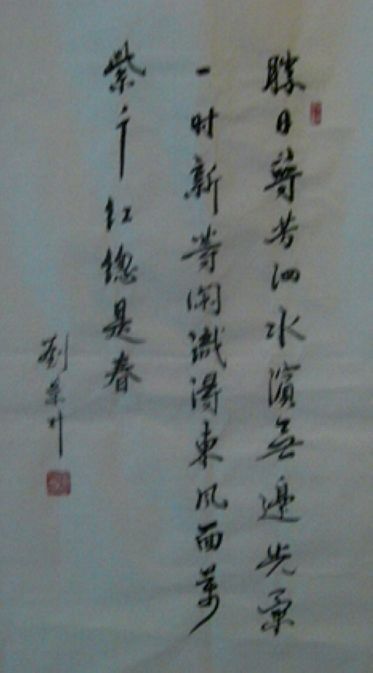 勝日尋芳泗水濱無邊光景
一时新等閑識得東风面萬
紫千红總是春
劉